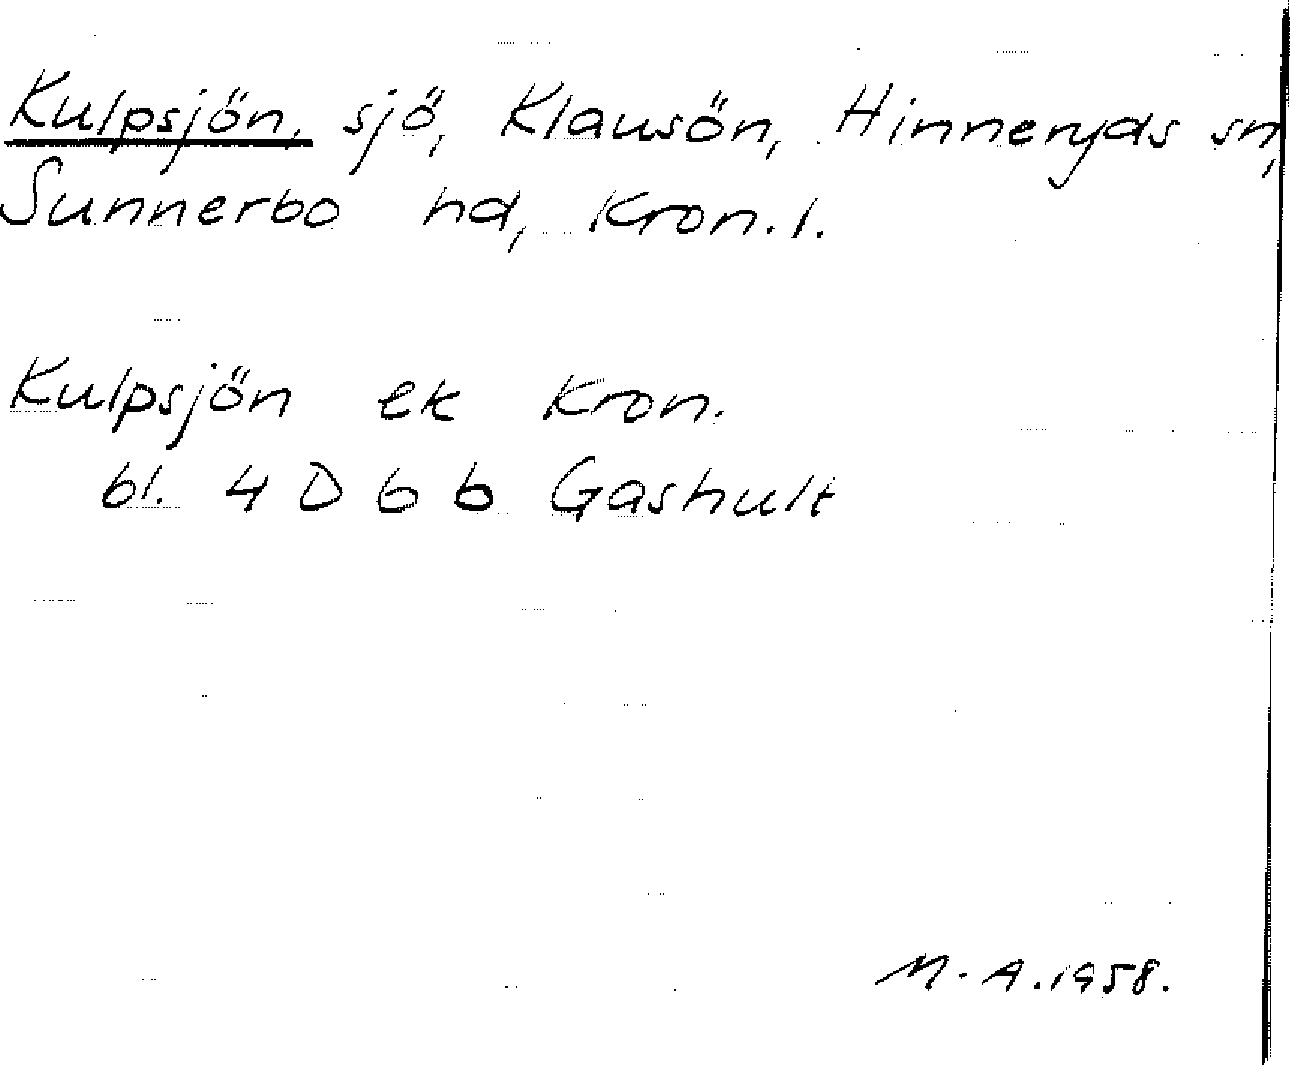 Kulpsjön, sjö, Klausön, Hinneryds sn,
Sunnerbo hd, Kron. l.
Kulpsjön ek Kron.
bl. 4 D 6 b Gashult
M. A. 1958.